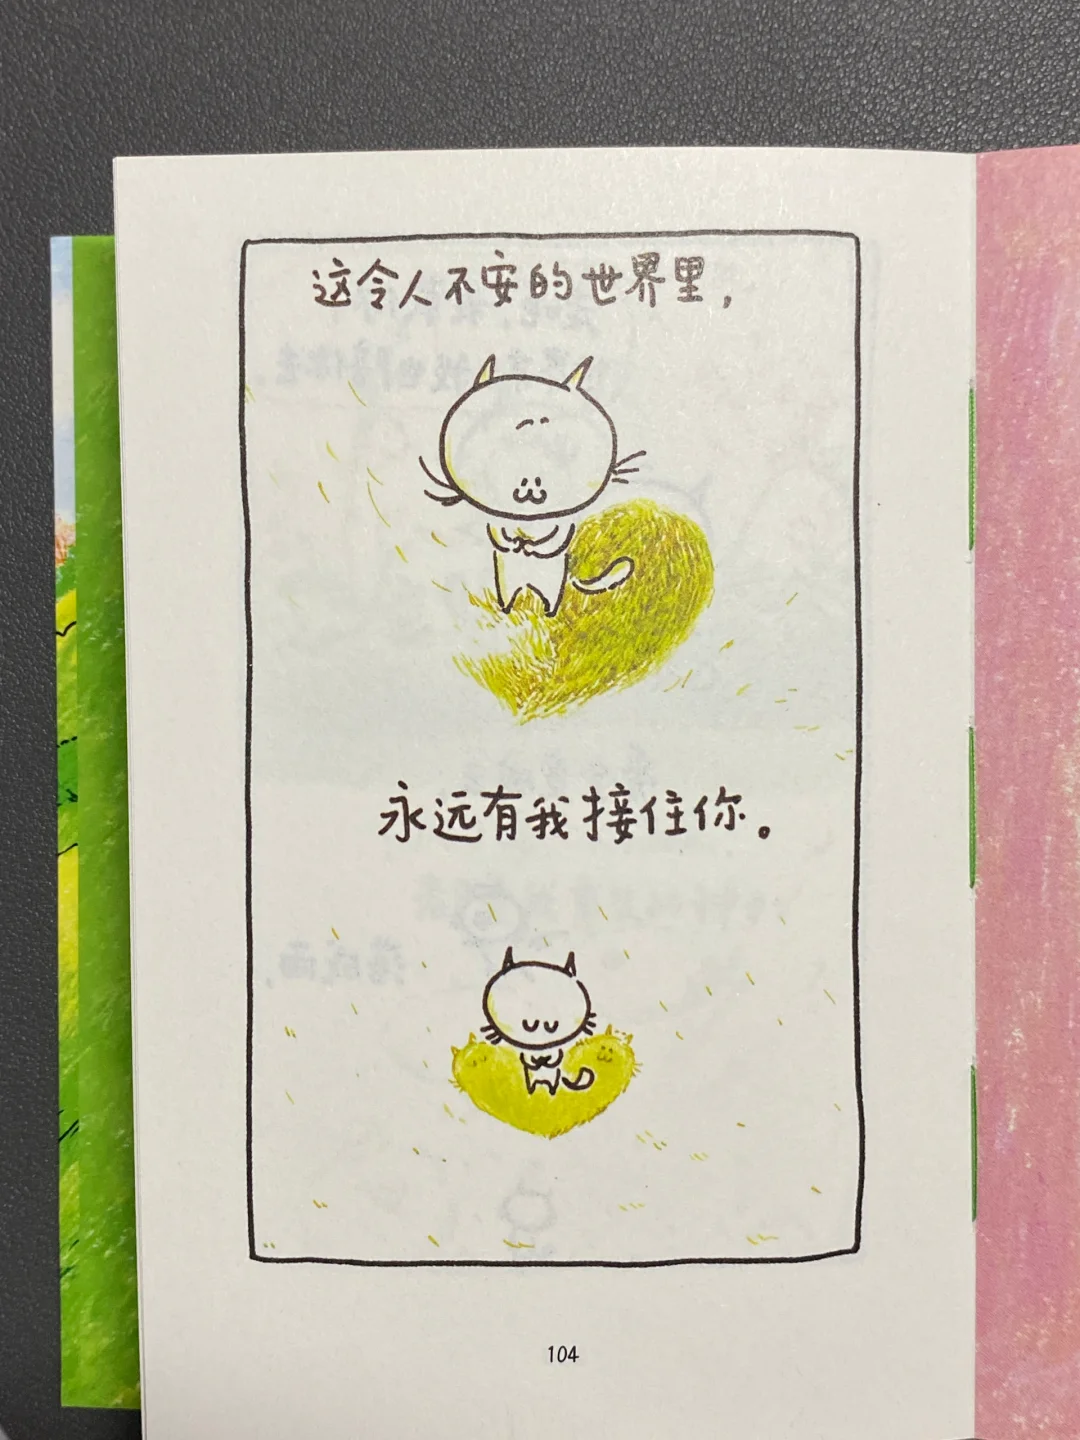 这令人不安的世界里，
永远有我接住你。
104